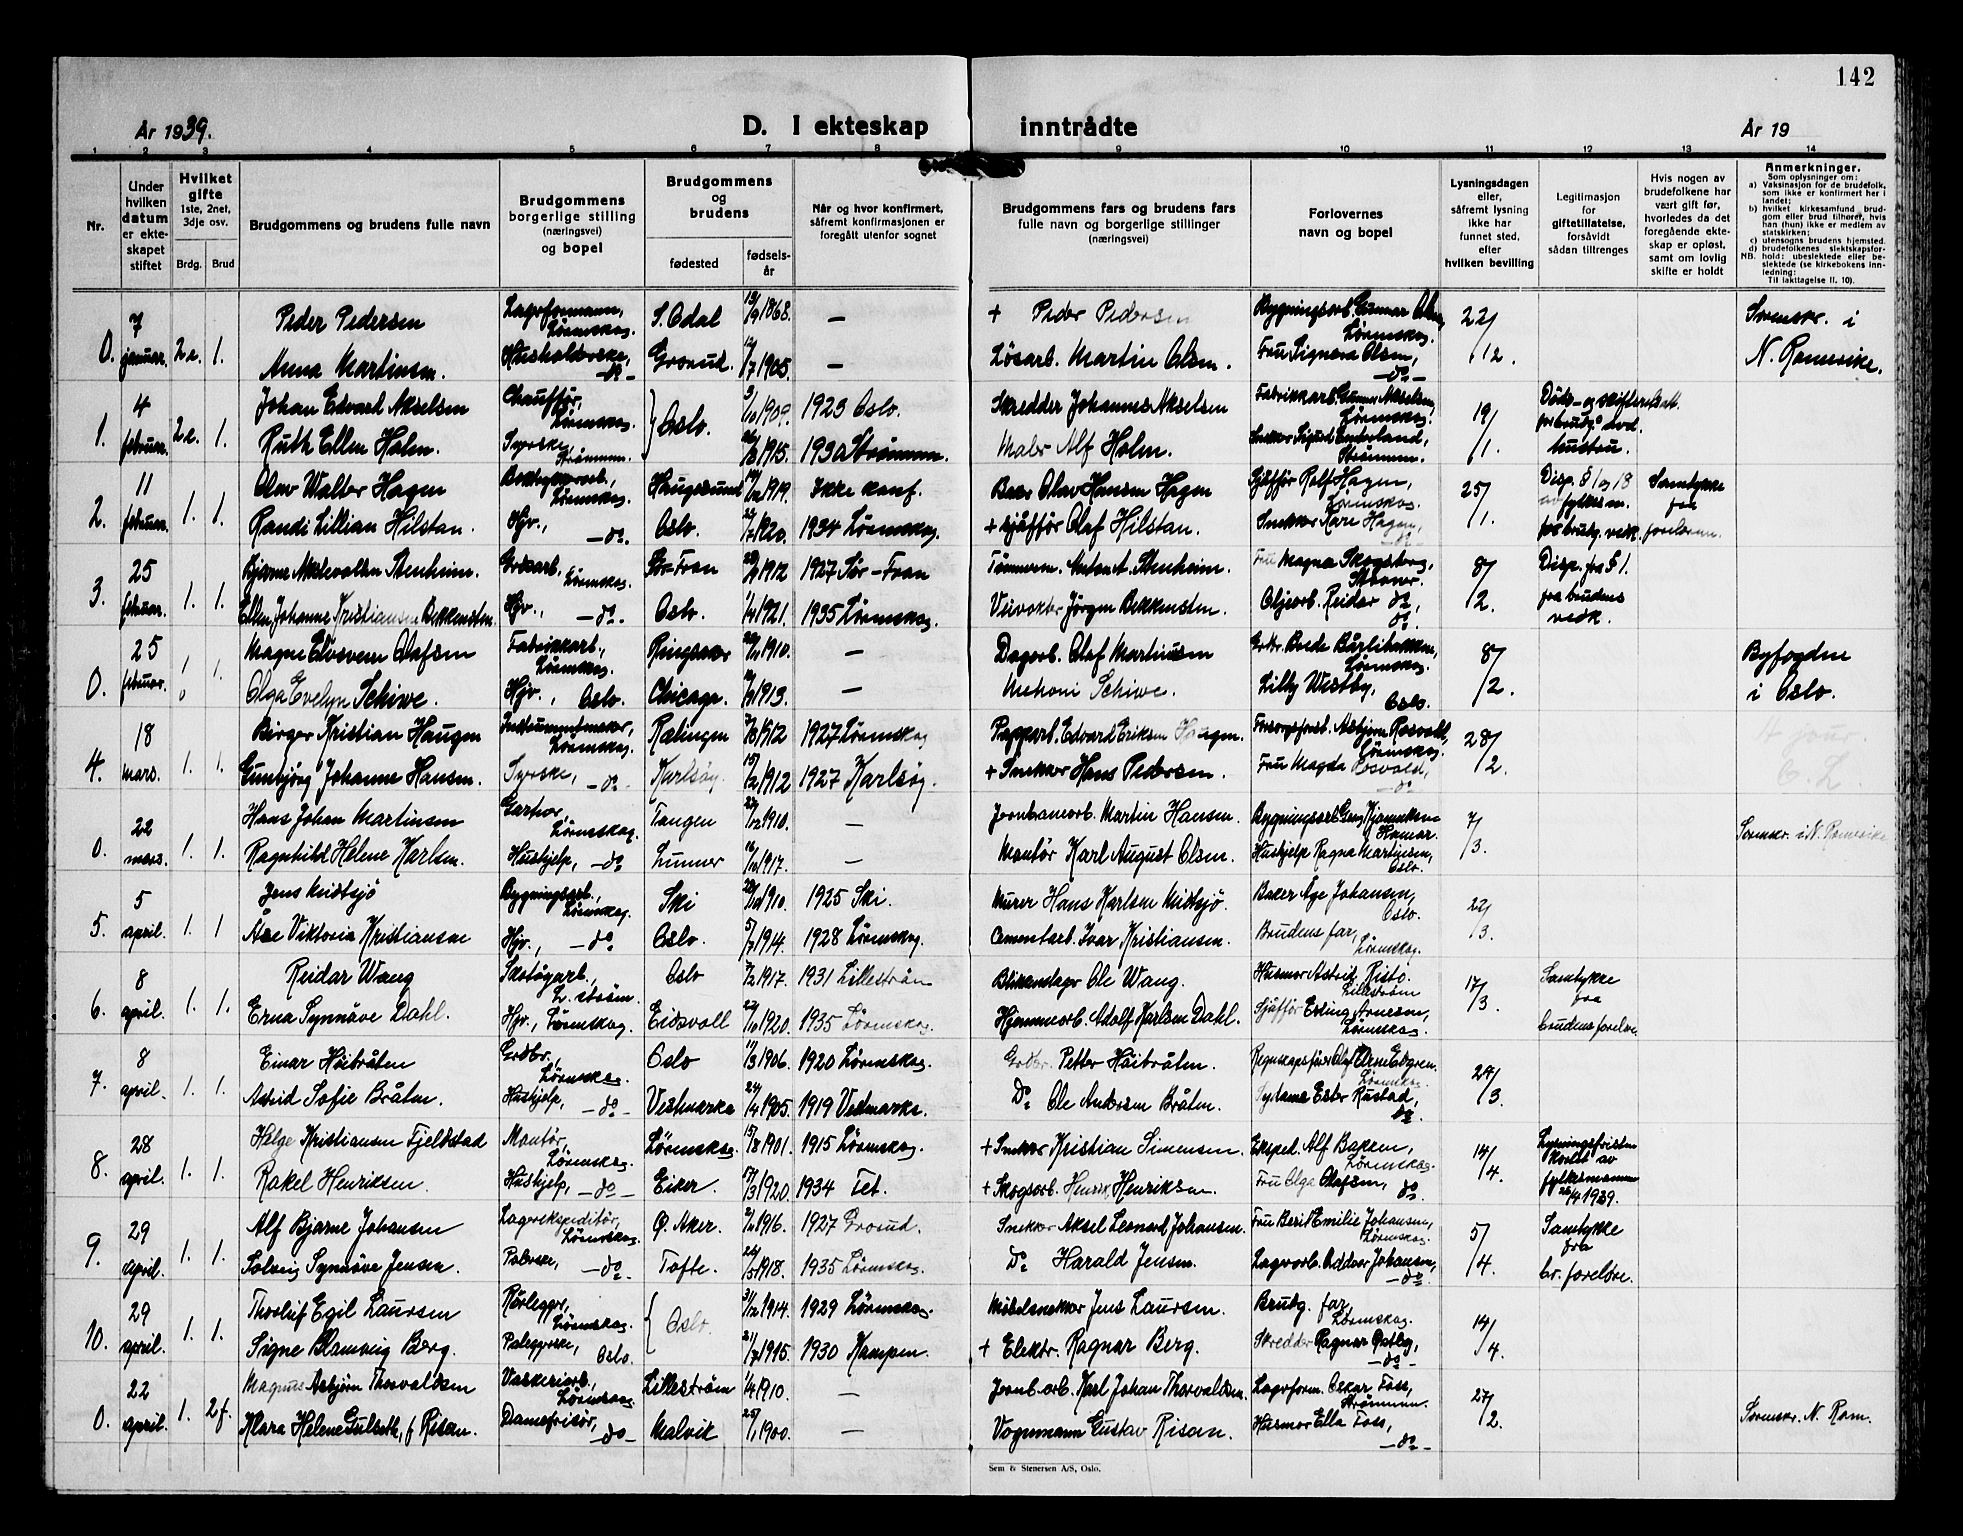 142
År 1939.
D. I ekteskap inntrådte
År 19
1 2 3 4 5 6 7 8 9 10 11 12 13 14
Nr.
Under hvilken datum er ekteskapet stiftet
Hvilket gifte 1ste, 2net, 3dje osv.
Brdg. Brud
Brudgommens og brudens fulle navn
Brudgommens borgerlige stilling (næringsvei) og bopel
Brudgommens og brudens
fødested
fødselsår
Når og hvor konfirmert, såfremt konfirmasjonen er foregått utenfor sognet
Brudgommens fars og brudens fars fulle navn og borgerlige stillinger (næringsvei)
Forlovernes navn og bopel
Lysningsdagen eller, såfremt lysning ikke har funnet sted, efter hvilken bevilling
Legitimasjon for giftetillatelse, forsåvidt sådan tiltrenges
Hvis nogen av brudefolkene har vært gift før, hvorledes da det foregående ekteskap er opløst, samt om lovlig skifte er holdt
Anmerkninger.
Som oplysninger om:
a) Vaksinasjon for de brudefolk, som ikke er konfirmert her i landet;
b) hvilket kirkesamfund brudgom eller brud tilhører, hvis han (hun) ikke er medlem av statskirken;
c) utensogns brudens hjemsted.
d) brudefolkenes slektskapsforhold: ubeslektede eller beslektede (se kirkebokens innledning;
NB.
Til iakttagelse II. 10).
0. 7 januar. 2e. 1. Peder Pedersen Lagerformann, Lørenskog. S. Odal 19/9 1868. — + Peder Pedersen Bygningsarb. Gunnar Olsen, Lørenskog. 22/12. Sorenskr. i N. Romerike.
Anna Martinsen. Husholderske, — do — Grorud. 1905. — Løsarb. Martin Olsen. Fru Signora Olsen, — do —
1. 4 februar. 2e. 1. Johan Edvard Akselsen Chauffør, Lørenskog. Oslo. 1909. 1923 Oslo. Skredder Johannes Akselsen Fabrikkarb. Gunnar Akselsen, Lørenskog. 19/1. Døds- og skifteattest for brudg.s avd. hustru.
Ruth Ellen Holm. Syerske, Strømmen. 1915. 1930 Strømmen. Maler Alf Holm. Snekker Sigurd Strømmen.
2. 11 februar. 1. 1. Olav Walter Hagen Lørenskog. Haugesund 1919. Ikke konf. Baker Olav Hansen Hagen Sjåfør Rolf Hagen, Lørenskog. 25/1. Disp. § 1 og 13 av fylkesm. for brudg. vedk. Samtykke fra foreldrene.
Randi Lillian Hilstan. Hjv., — do. Oslo. 1920. 1934 Lørenskog. + sjåfør Olaf Hilstan. Snekker Kåre Hagen, — do —
3. 25 februar. 1. 1. Bjarne Stenheim. Grdsarb., Lørenskog. Sør-Fron 1912 1927 Sør-Fron Tømmerm. Anton A. Stenheim. Fru Magna Skogsborg, 8/2. Disp. fra § 1. fra brudens vedk.
Ellen Johanne Kristiansen Bekkensten. Hjv., — do. Oslo. 1921. 1935 Lørenskog. Veivokter Jørgen Bekkensten. Oljearb. Reidar do, do.
0. 25 februar. 1. 1. Magne Olafsen Fabrikkarb., Lørenskog. Ringsaker 1910. — Dagarb. Olaf Martinsen Lørenskog. 8/2. Byfogden i Oslo.
Olga Evelyn Schiwe. Hjv., Oslo. Chicago. 1913. — Schiwe. Lilly Westby, Oslo.
4. 18 mars. 1. 1. Birger Kristian Haugen Instrumentmaker, Lørenskog. Rælingen 1912 1927 Lørenskog Papparb. Edvard Eriksen Haugen. Asbjørn Rosvold, Lørenskog. 28/2.
Gunbjørg Johanne Hansen. Syerske, — do Karlsøy 1912 1927 Karlsøy. + Snekker Hans Pedersen. Fru Magda Rosvold, — do
0. 22 mars. 1. 1. Hans Johan Martinsen Gartner, Lørenskog. Tangen 1910. — Jernbanearb. Martin Hansen. Hamar. 7/3. Sorenskr. i N. Romerike
Ragnhild Helene Karlsen. Hushjelp, — do Lunner 1917. — Montør Karl August Olsen. Hushjelp Ragna Martinsen, Oslo.
5. 5 april. 1. 1 Jens Midtsjø Bygningsarb., Lørenskog. Ski 1910. 1925 Ski. Murer Hans Karlsen Midtsjø. Baker Åge Johansen, Oslo. 22/3.
Åse Viktoria Kristiansen Hjv., — do Oslo. 1914. 1928 Lørenskog. Cementarb. Ivar Kristiansen. Brudens far, Lørenskog.
6. 8 april. 1. 1. Reidar Wang Skotøyarb., L. strøm. Oslo 1917. 1931 Lillestrøm Blikkenslager Ole Wang. Husmor Astrid Risto. Lillestrøm 17/3. Samtykke fra brudens foreldre
Erna Synnøve Dahl. Hjv., Lørenskog. Eidsvoll 1920. 1935 Lørenskog. Hjemmearb. Adolf Karlsen Dahl. Sjåfør Erling Arnesen, Lørenskog.
7. 8 april. 1. 1. Einar Høibråten Grdbr., Lørenskog. Oslo 1906. 1920 Lørenskog. Grdbr. Petter Høibråten. Lørenskog. 24/3.
Astrid Sofie Bråten. Hushjelp, — do — Vestmarka 1905. 1919 Vestmarka. Do. Ole Andersen Bråten. Sydame Ester Rustad, do.
8. 28 april. 1. 1. Helge Kristiansen Fjeldstad Montør, Lørenskog. Lørenskog. 1901. 1915 Lørenskog. + Snekker Kristian Simensen. Eksped. Alf Bakken, Lørenskog. 14/4. Lysningsfristen kortet av fylkesmannen /4 1939.
Rakel Henriksen. Hushjelp, — do — Eiker. 1920. 1934 Fet. + Skogsarb. Henrik Henriksen. Fru Olga Olafsen, do.
9. 29 april. 1. 1. Alf Bjarne Johansen Lagerekspeditør, Lørenskog. Ø. Aker. 1916. 1927 Grorud. Snekker Aksel Leonard Johansen. Fru Berit Emilie Johansen, Lørenskog. 5/4. Samtykke fra br. foreldre.
Solveig Synnøve Jensen. — do. Tofte. 1918. 1935 Lørenskog. Do. Harald Jensen. Lagerarb. Oddvar Johansen, — do.
10. 29 april. 1. 1. Thorleif Egil Laursen Rørlegger, Lørenskog. Oslo. 1914. 1929 Lørenskog. Møbelsnekker Jens Laursen. Brudg. far, Lørenskog. 14/4.
Signe Blamveig Berg. Oslo. 1915. 1930 Kampen. + Elektr. Ragnar Berg. Skredder Ragnar Østby, — do —
0. 22 april. 1. 2f. Magnus Asbjørn Thorvaldsen Vaskeriarb., Lørenskog. Lillestrøm 1910. — Jernb.arb. Karl Johan Thorvaldsen. Lagerform. Oskar Foss, Strømmen. 27/2. Sorenskr. N. Rom.
Klara Helene Gulseth, f. Risan. Damefrisør, — do Malvik 1900. — Vognmann Gustav Risan. Husmor Ella Foss, — do —
Sem & Stenersen A/S, Oslo.